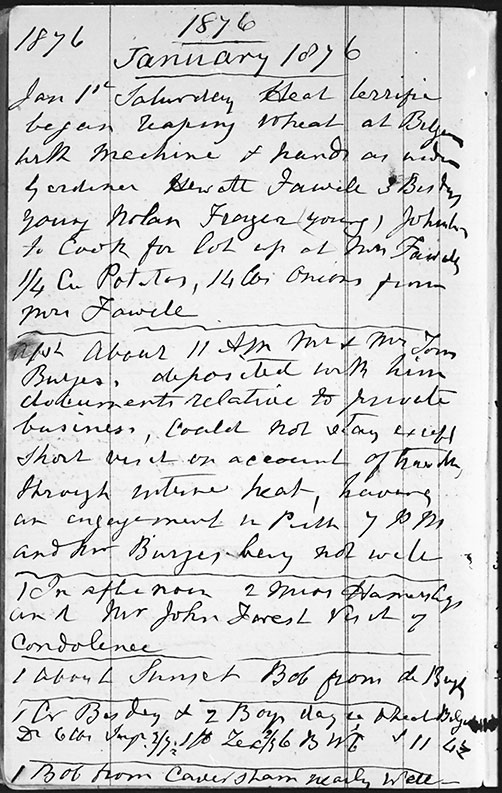 1876
1876
January 1876
Jan 1st Saturday Heat terrific
began reaping wheat at
with machine & hands as under
Gardiner Hewett Fawell 3
young Nolan Frazer (young)
to Cook for lot up at Mrs Fawells
1/4 Potatos, 14 lbs Onions from
Mrs Fawell
About 11 Mr & Mrs Tom
Burges, deposited with him
documents relative to private
business, could not stay except
short visit on account of health,
through intense heat, having
an engagement in Perth 7 PM
and Mr Burges being not well
1 In afternoon 2 Miss Hamersleys
and Mr John Forest Visit of
Condolence
1 about Sunset Bob from de Burgh
1 Cr & 2 Boys day
Dr 6 lbs
1 Bob from Caversham nearly Well